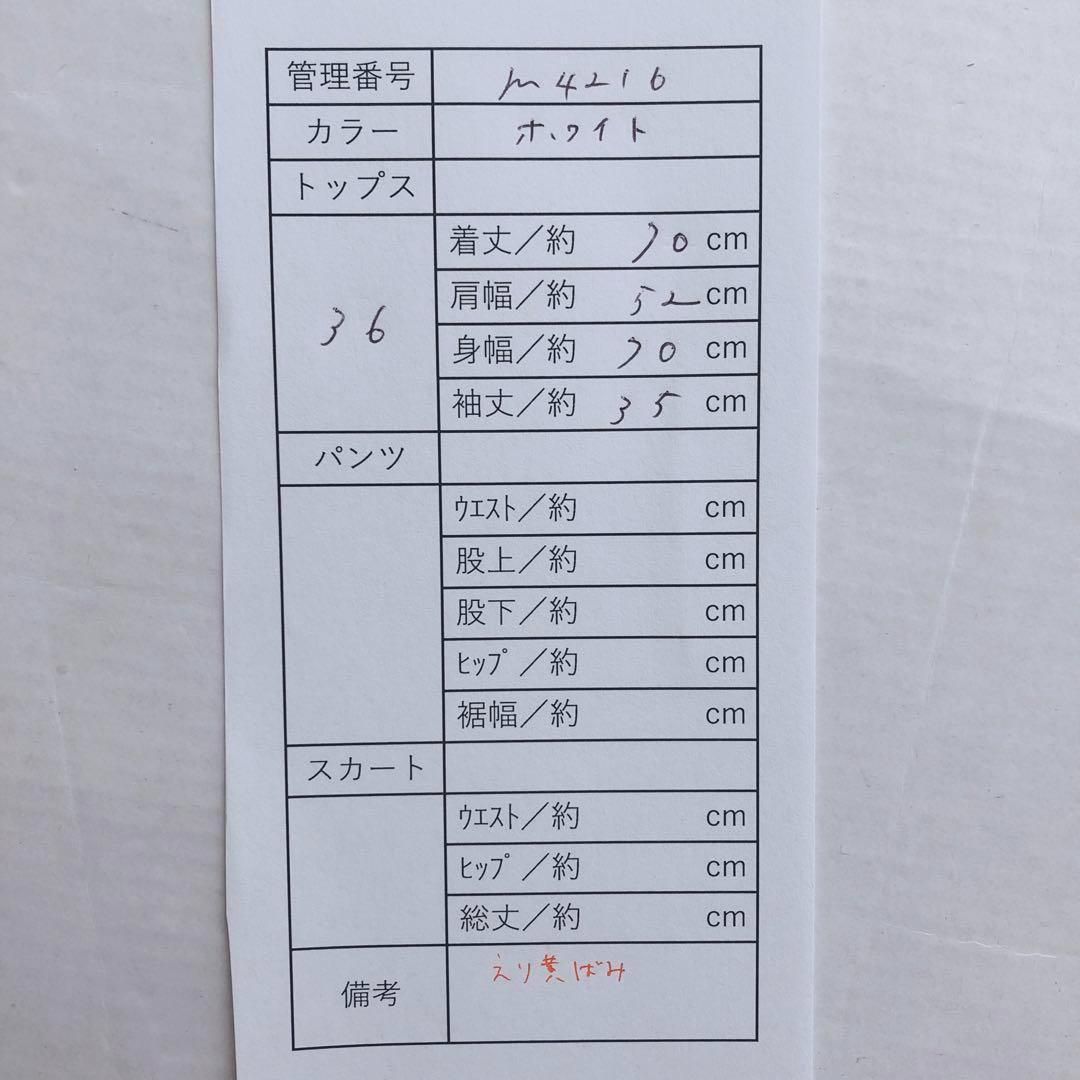 管理番号 M4216
カラー ホワイト
トップス
36
着丈／約 70 cm
肩幅／約 52 cm
身幅／約 70 cm
袖丈／約 35 cm
パンツ
ｳｴｽﾄ／約 cm
股上／約 cm
股下／約 cm
ﾋｯﾌﾟ／約 cm
裾幅／約 cm
スカート
ｳｴｽﾄ／約 cm
ﾋｯﾌﾟ／約 cm
総丈／約 cm
備考 えり黄ばみ